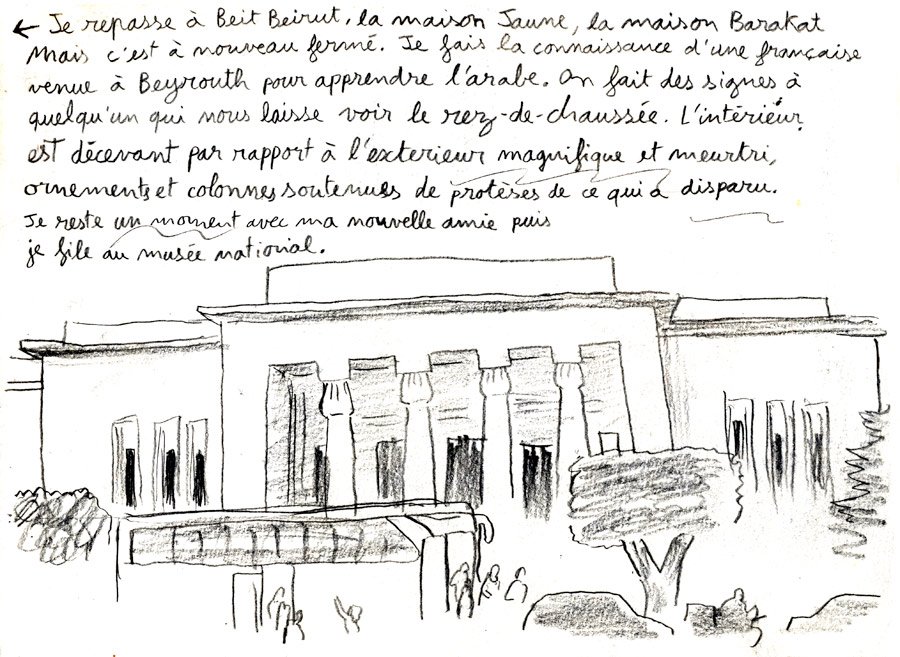 ← Je repasse à Beit Beirut, la maison Jaune, la maison Barakat
Mais c'est à nouveau fermé. Je fais la connaissance d'une française
venue à Beyrouth pour apprendre l'arabe. On fait des signes à
quelqu'un qui nous laisse voir le rez-de-chaussée. L'intérieur
est décevant par rapport à l'exterieur magnifique et meurtri,
ornements et colonnes soutenues de protèses de ce qui a disparu.
Je reste un moment avec ma nouvelle amie puis
je file au musée national.